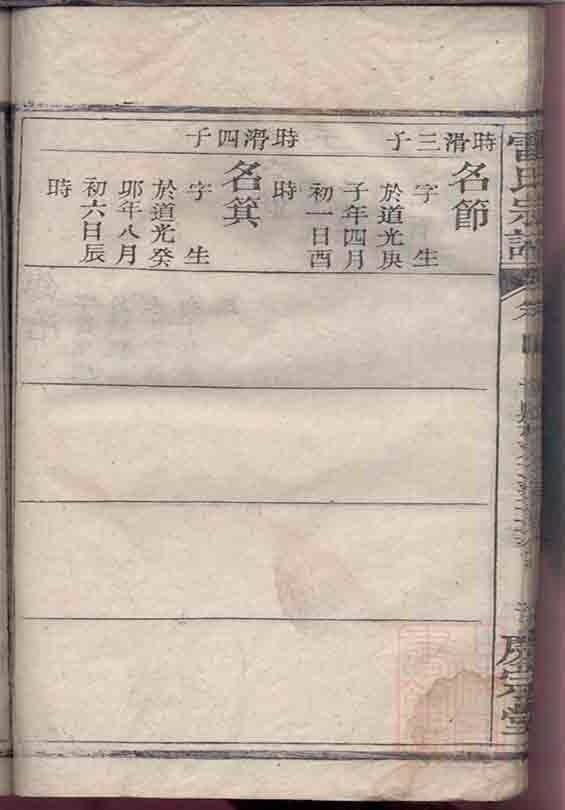 時滑三子
名節
字 生
於道光庚
子年四月
初一日酉
時
時滑四子
名箕
字 生
於道光癸
卯年八月
初六日辰
時
雷氏宗譜